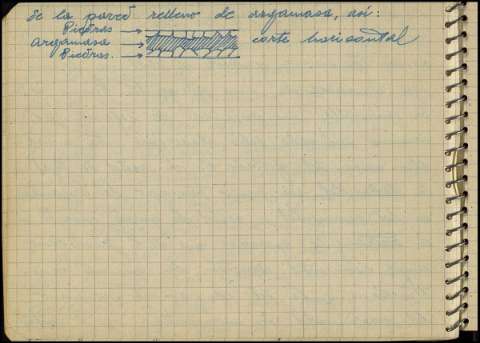 de la pared relleno de argamasa, así:
Piedras
argamasa
Piedras.
corte horizontal